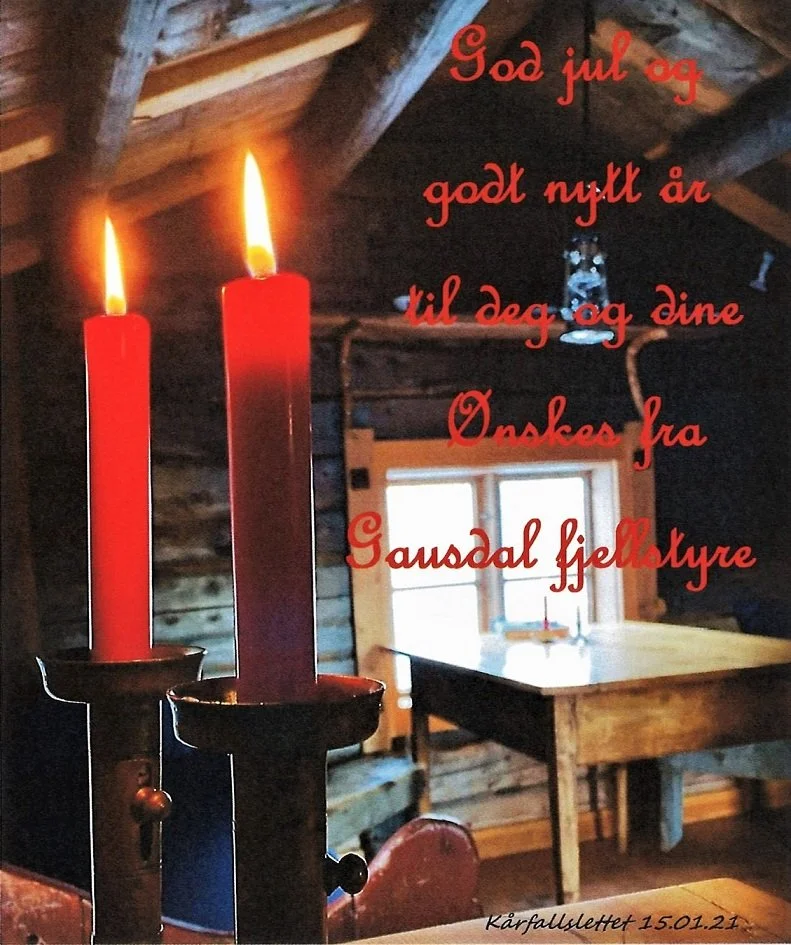 God jul og
godt nytt år
til deg og dine
Ønskes fra
Gausdal fjellstyre
Kårfallslettet 15.01.21